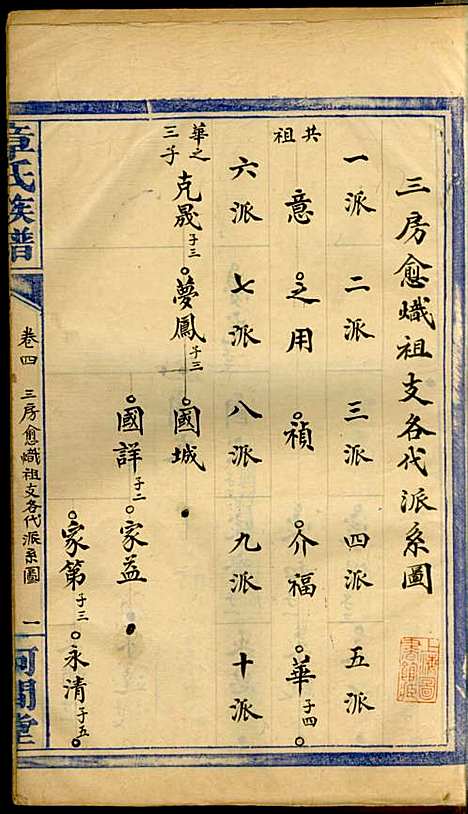 三房愈熾祖支各代派系圖
一派 二派 三派 四派 五派
共祖 意 之用 禎 介福 華 子四
六派 七派 八派 九派 十派
華之三子 克晟 子三 夢鳳 子三 國城
國詳 子二 家益
家第 子三 永清 子五
章氏族譜 卷四 三房愈熾祖支各代派系圖 一 河間堂
上海圖書館藏